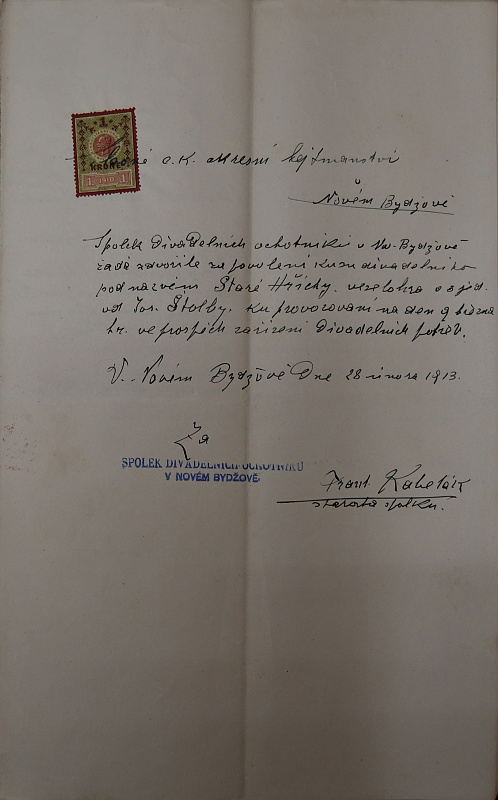 1
KRONE
1 1910 1
c. k. okresní hejtmanství
v
Novém Bydžově
Spolek Divadelních ochotníků v N.-Bydžově
žádá zdvořile za povolení kusu divadelního
pod názvem Staré Hříchy. veselohra o 3 jed.
od Jos. Štolby. ku provozování na den 9 března
t.r. ve prospěch zařízení Divadelních potřeb.
V. Novém Bydžově Dne 28 února 1913.
Za
SPOLEK DIVADELNÍCH OCHOTNÍKŮ
V NOVÉM BYDŽOVĚ.
Frant Kabelák
starosta spolku.